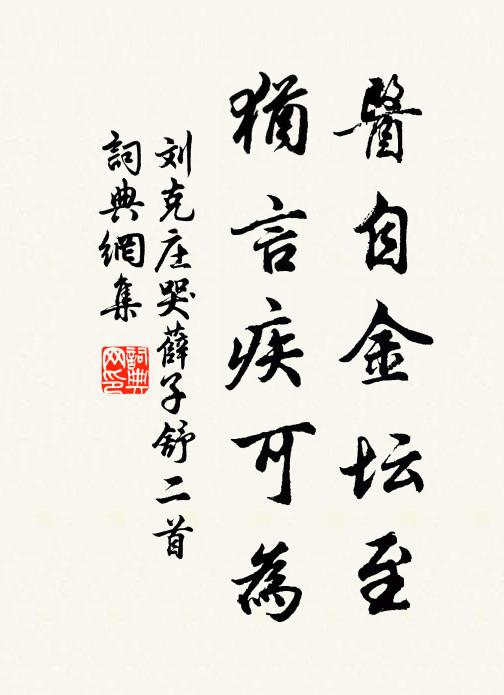 醫自金坛至
猶言疾可為
刘克庄哭薛子舒二首
詞典網集
詞典网印